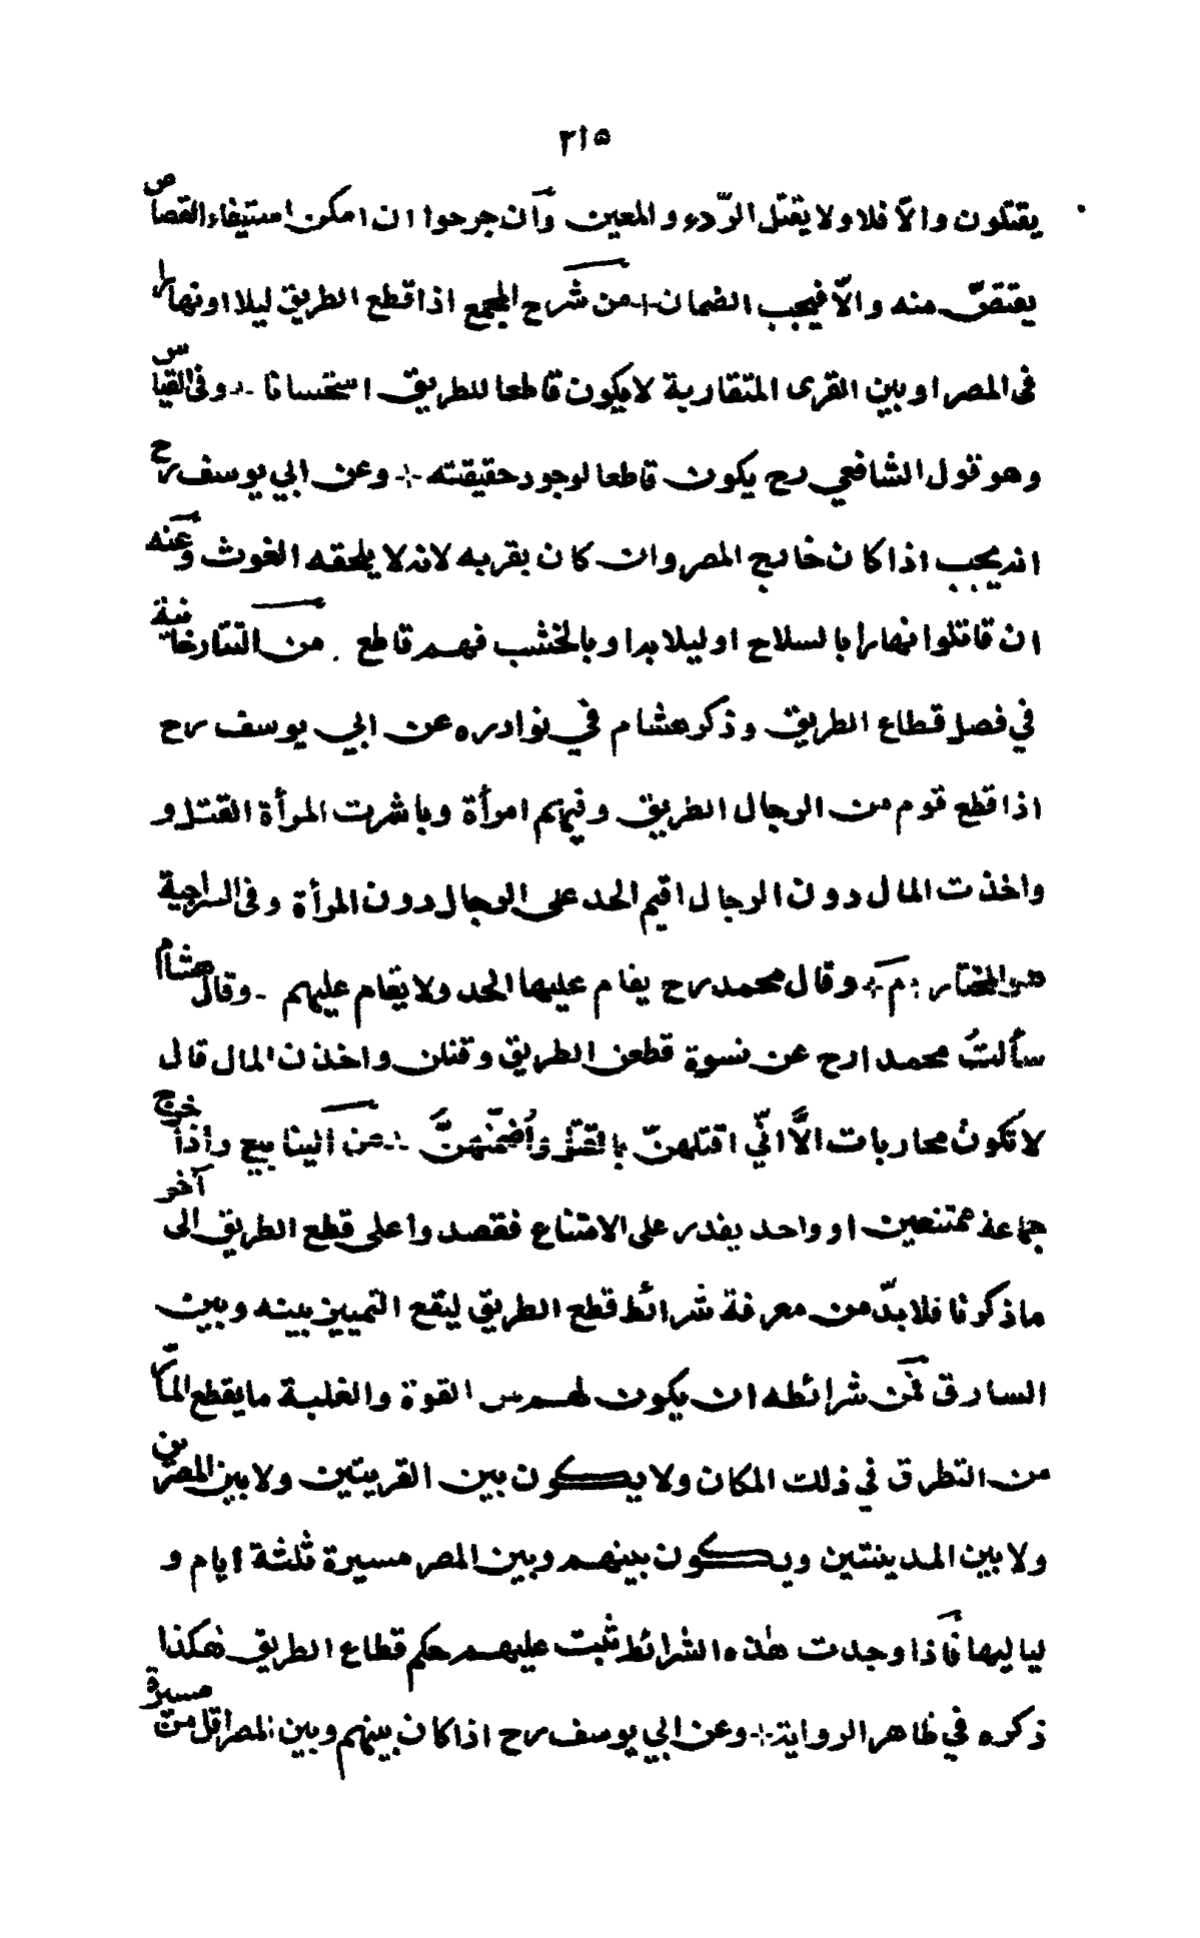 ٣١٥
يقتلون والّا فلا ولا يقتل الرّدء والمعين وان جرحوا ان امكن استيفاء القصاص
يقتصّ منه والّا فيجب الضمان من شرح المجمع اذا قطع الطريق ليلا او نهارا
فى المصر او بين القرى المتقاربة لا يكون قاطعا للطريق استحسانا وفى القياس
وهو قول الشافعي رح يكون قاطعا لوجود حقيقته وعن ابي يوسف رح
انه يجب اذا كان خارج المصر وان كان بقربه لانه لا يلحقه الغوث وعنه
ان قاتلوا نهارا بالسلاح او ليلا بدا وبالخشب فهم قاطع . من التتارخانية
في فصل قطاع الطريق وذكر هشام في نوادره عن ابي يوسف رح
اذا قطع قوم من الرجال الطريق وفيهم امرأة وباشرت المرأة القتل و
واخذت المال دون الرجال اقيم الحد على الرجال دون المرأة وفى السراجية
هو المختار م وقال محمد رح يقام عليها الحد ولا يقام عليهم - وقال هشام
سألتُ محمدا رح عن نسوة قطعن الطريق وقتلن واخذن المال قال
لا تكونُ محاربات الّا انّي اقتلهنّ بالقتل وأضمّنهنّ من الينابيع واذا خرج
جماعة ممتنعين او واحد يقدر على الامتناع فقصدوا على قطع الطريق الى آخر
ما ذكرنا فلا بدّ من معرفة شرائط قطع الطريق ليقع التمييز بينه وبين
السارق فمن شرائطه ان يكون لهم القوة والغلبة ما يقطع المارّة
من التطرق في ذلك المكان ولا يكون بين القريتين ولا بين المصرين
ولا بين المدينتين ويكون بينهم وبين المصر مسيرة ثلثة ايام و
لياليها فاذا وجدت هذه الشرائط ثبت عليهم حكم قطاع الطريق هكذا
ذكره في ظاهر الرواية وعن ابي يوسف رح اذا كان بينهم وبين المصر اقل من مسيرة